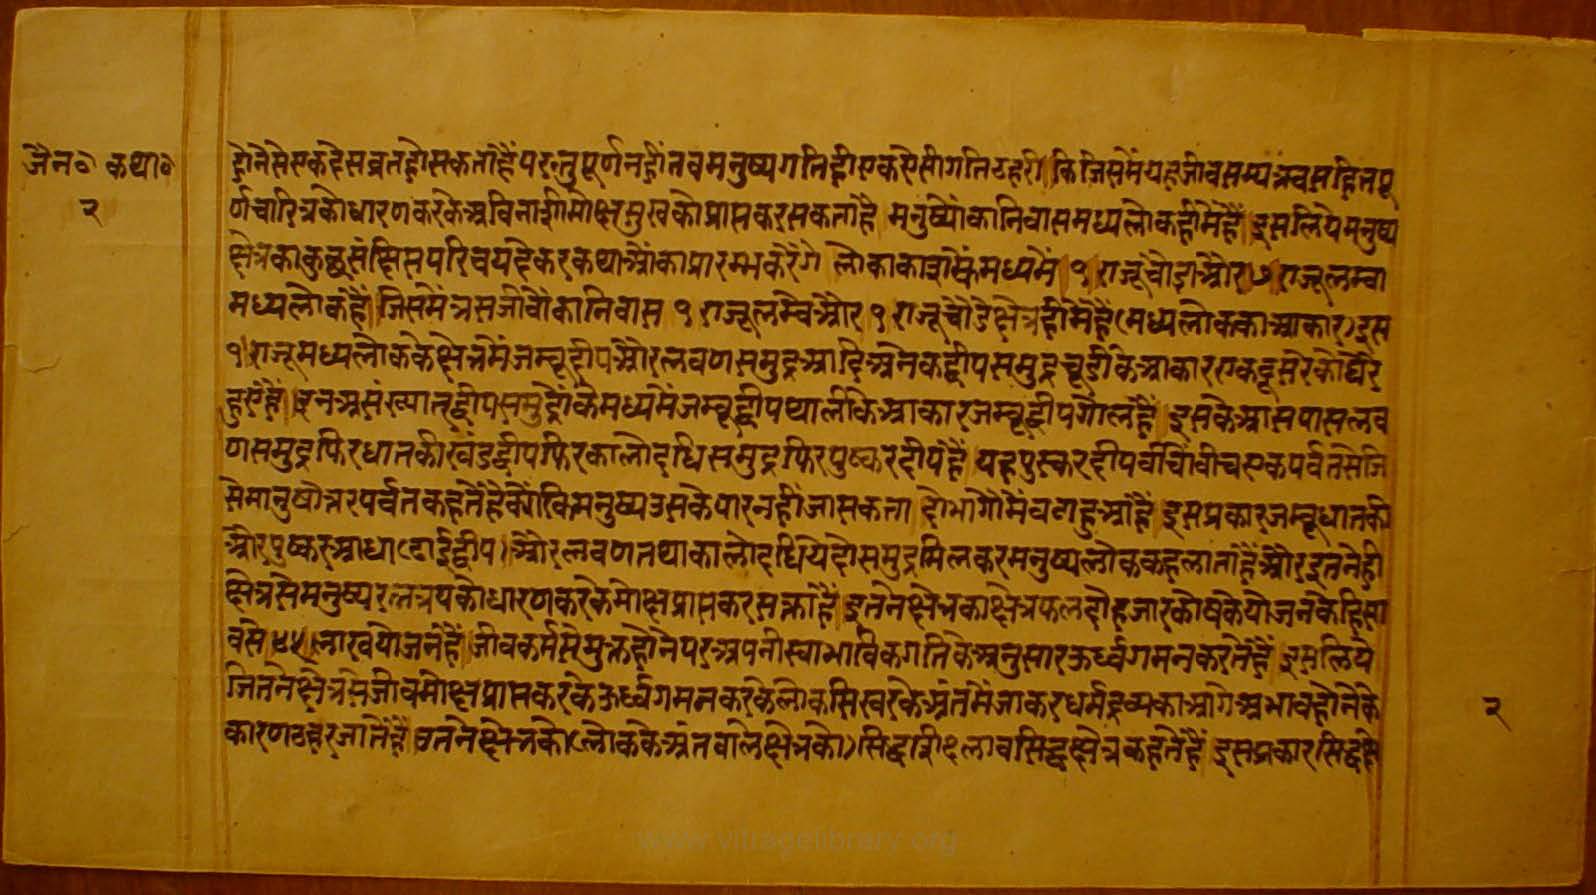 जैन॰ कथा॰
२
होनेसे एकदेसव्रत हो सकता है परन्तु पूर्ण नहीं तब मनुष्यगति ही एक ऐसी गति ठहरी कि जिसमें यह जीव सम्यक्त्व सहित पू
र्णचारित्रको धारण करके अविनाशी मोक्षसुखको प्राप्त कर सकता है मनुष्योंका निवास मध्यलोक ही में है इसलिये मनुष्य
क्षेत्रका कुछ संक्षिप्त परिचय देकर कथाओंका प्रारम्भ करेंगे लोकाकाशके मध्यमें १ राजू चौड़ा और ७ राजू लम्बा
मध्यलोक है जिसमें त्रस जीवोंका निवास १ राजू लम्बे और १ राजू चौड़े क्षेत्र ही में है (मध्यलोकका आकार) इस
१ राजू मध्यलोकके क्षेत्रमें जम्बूद्वीप और लवणसमुद्र आदि अनेक द्वीप समुद्र चूड़ीके आकार एक दूसरेको घेरे
हुए हैं इन असंख्यात द्वीप समुद्रोंके मध्यमें जम्बूद्वीप थालीके आकार जम्बूद्वीप गोल है इसके आसपास लव
णसमुद्र फिर धातकीखंडद्वीप फिर कालोदधि समुद्र फिर पुष्कर द्वीप है यह पुस्कर द्वीप बीचोंबीच एक पर्वतसे जि
से मानुषोत्तर पर्वत कहते हैं क्योंकि मनुष्य उसके पार नहीं जा सकता दो भागोंमें बटा हुआ है इस प्रकार जम्बू धातकी
और पुष्करुआधा (ढाई द्वीप) और लवण तथा कालोदधि ये दो समुद्र मिलकर मनुष्यलोक कहलाता है और इतने ही
क्षेत्रसे मनुष्य रत्नत्रयको धारण करके मोक्ष प्राप्त कर सक्ता है इतने क्षेत्रका क्षेत्रफल दो हजार कोषके योजनके हिसा
बसे ४५ लाख योजन है जीव कर्मसे मुक्त होनेपर अपनी स्वाभाविक गतिके अनुसार ऊर्ध्वगमन करते हैं इसलिये
जितने क्षेत्रसे जीव मोक्ष प्राप्त करके ऊर्ध्वगमन करके लोकसिखरके अंतमें जाकर धर्मद्रव्यका आगे अभाव होनेके
कारण ठहर जाते हैं उतने क्षेत्रको (लोकके अंतवाले क्षेत्रको) सिद्धशिला व सिद्धक्षेत्र कहते हैं इस प्रकार सिद्धक्षे
२
www.vitragelibrary.org